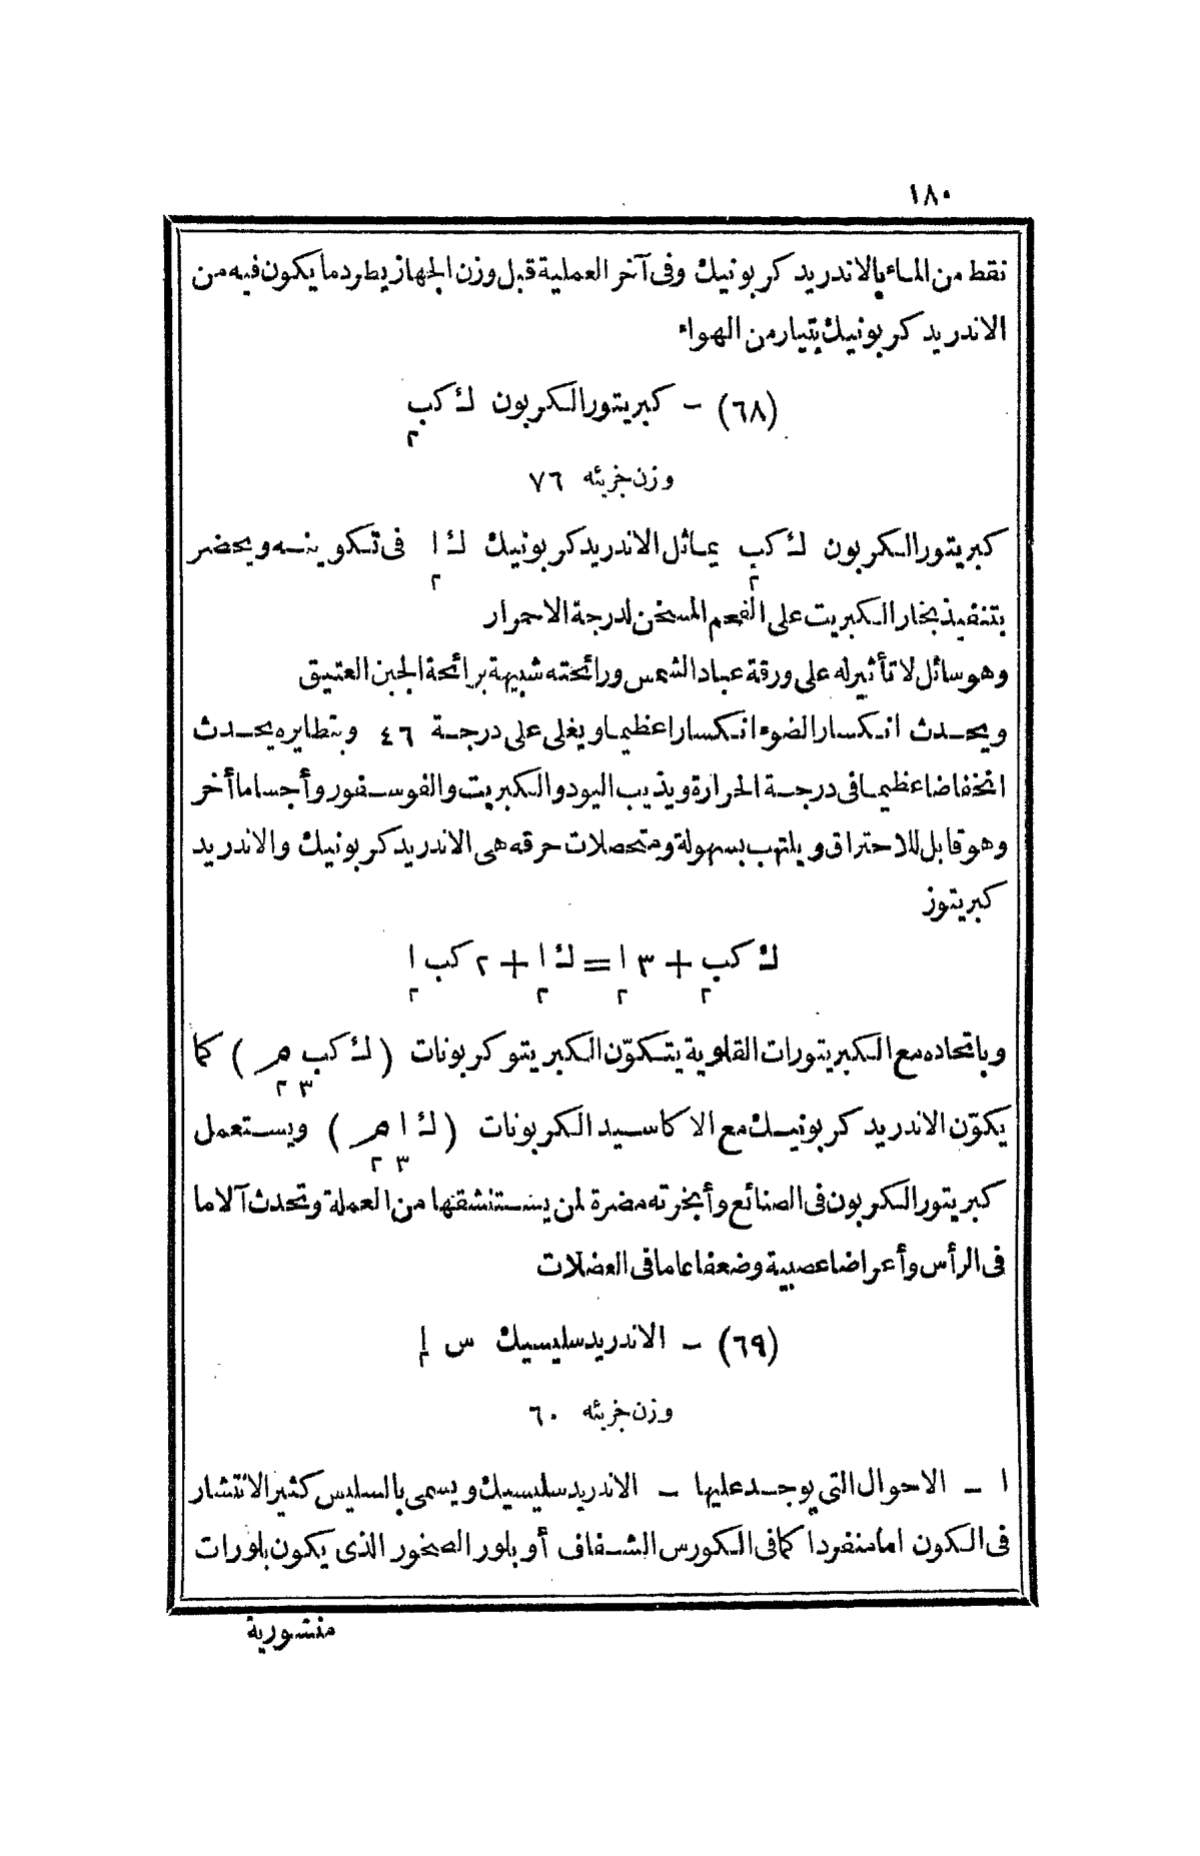 ١٨٠
نقط من الماء بالاندريد كربونيك وفى آخر العملية قبل وزن الجهاز يطرد ما يكون فيه من
الاندريد كربونيك بتيار من الهواء
(٦٨) - كبريتور الكربون ك كب
٢
وزن جزيئه ٧٦
كبريتور الكربون ك كب يماثل الاندريد كربونيك ك ا فى تكوينه ويحضر
٢ ٢
بتنفيذ بخار الكبريت على الفحم المسخن لدرجة الاحمرار
وهو سائل لا تأثير له على ورقة عباد الشمس ورائحته شبيهة برائحة الجبن العتيق
ويحدث انكسار الضوء انكسارا عظيما ويغلى على درجة ٤٦ وبتطايره يحدث
انخفاضا عظيما فى درجة الحرارة ويذيب اليود والكبريت والفوسفور وأجساما أخر
وهو قابل للاحتراق ويلتهب بسهولة ومتحصلات حرقه هى الاندريد كربونيك والاندريد
كبريتوز
ك كب + ٣ ا = ك ا + ٢ كب ا
٢ ٢ ٢ ٢
وباتحاده مع الكبريتورات القلوية يتكوّن الكبريتوكربونات (ك كب م) كما
٣ ٢
يكوّن الاندريد كربونيك مع الاكاسيد الكربونات (ك ا م) ويستعمل
٣ ٢
كبريتور الكربون فى الصنائع وأبخرته مضرة لمن يستنشقها من العملة وتحدث آلاما
فى الرأس وأعراضا عصبية وضعفا عاما فى العضلات
(٦٩) - الاندريد سليسيك س ا
٢
وزن جزيئه ٦٠
ا - الاحوال التى يوجد عليها - الاندريد سليسيك ويسمى بالسليس كثير الانتشار
فى الكون اما منفردا كما فى الكورس الشفاف أو بلور الصخور الذى يكون بلورات
منشورية